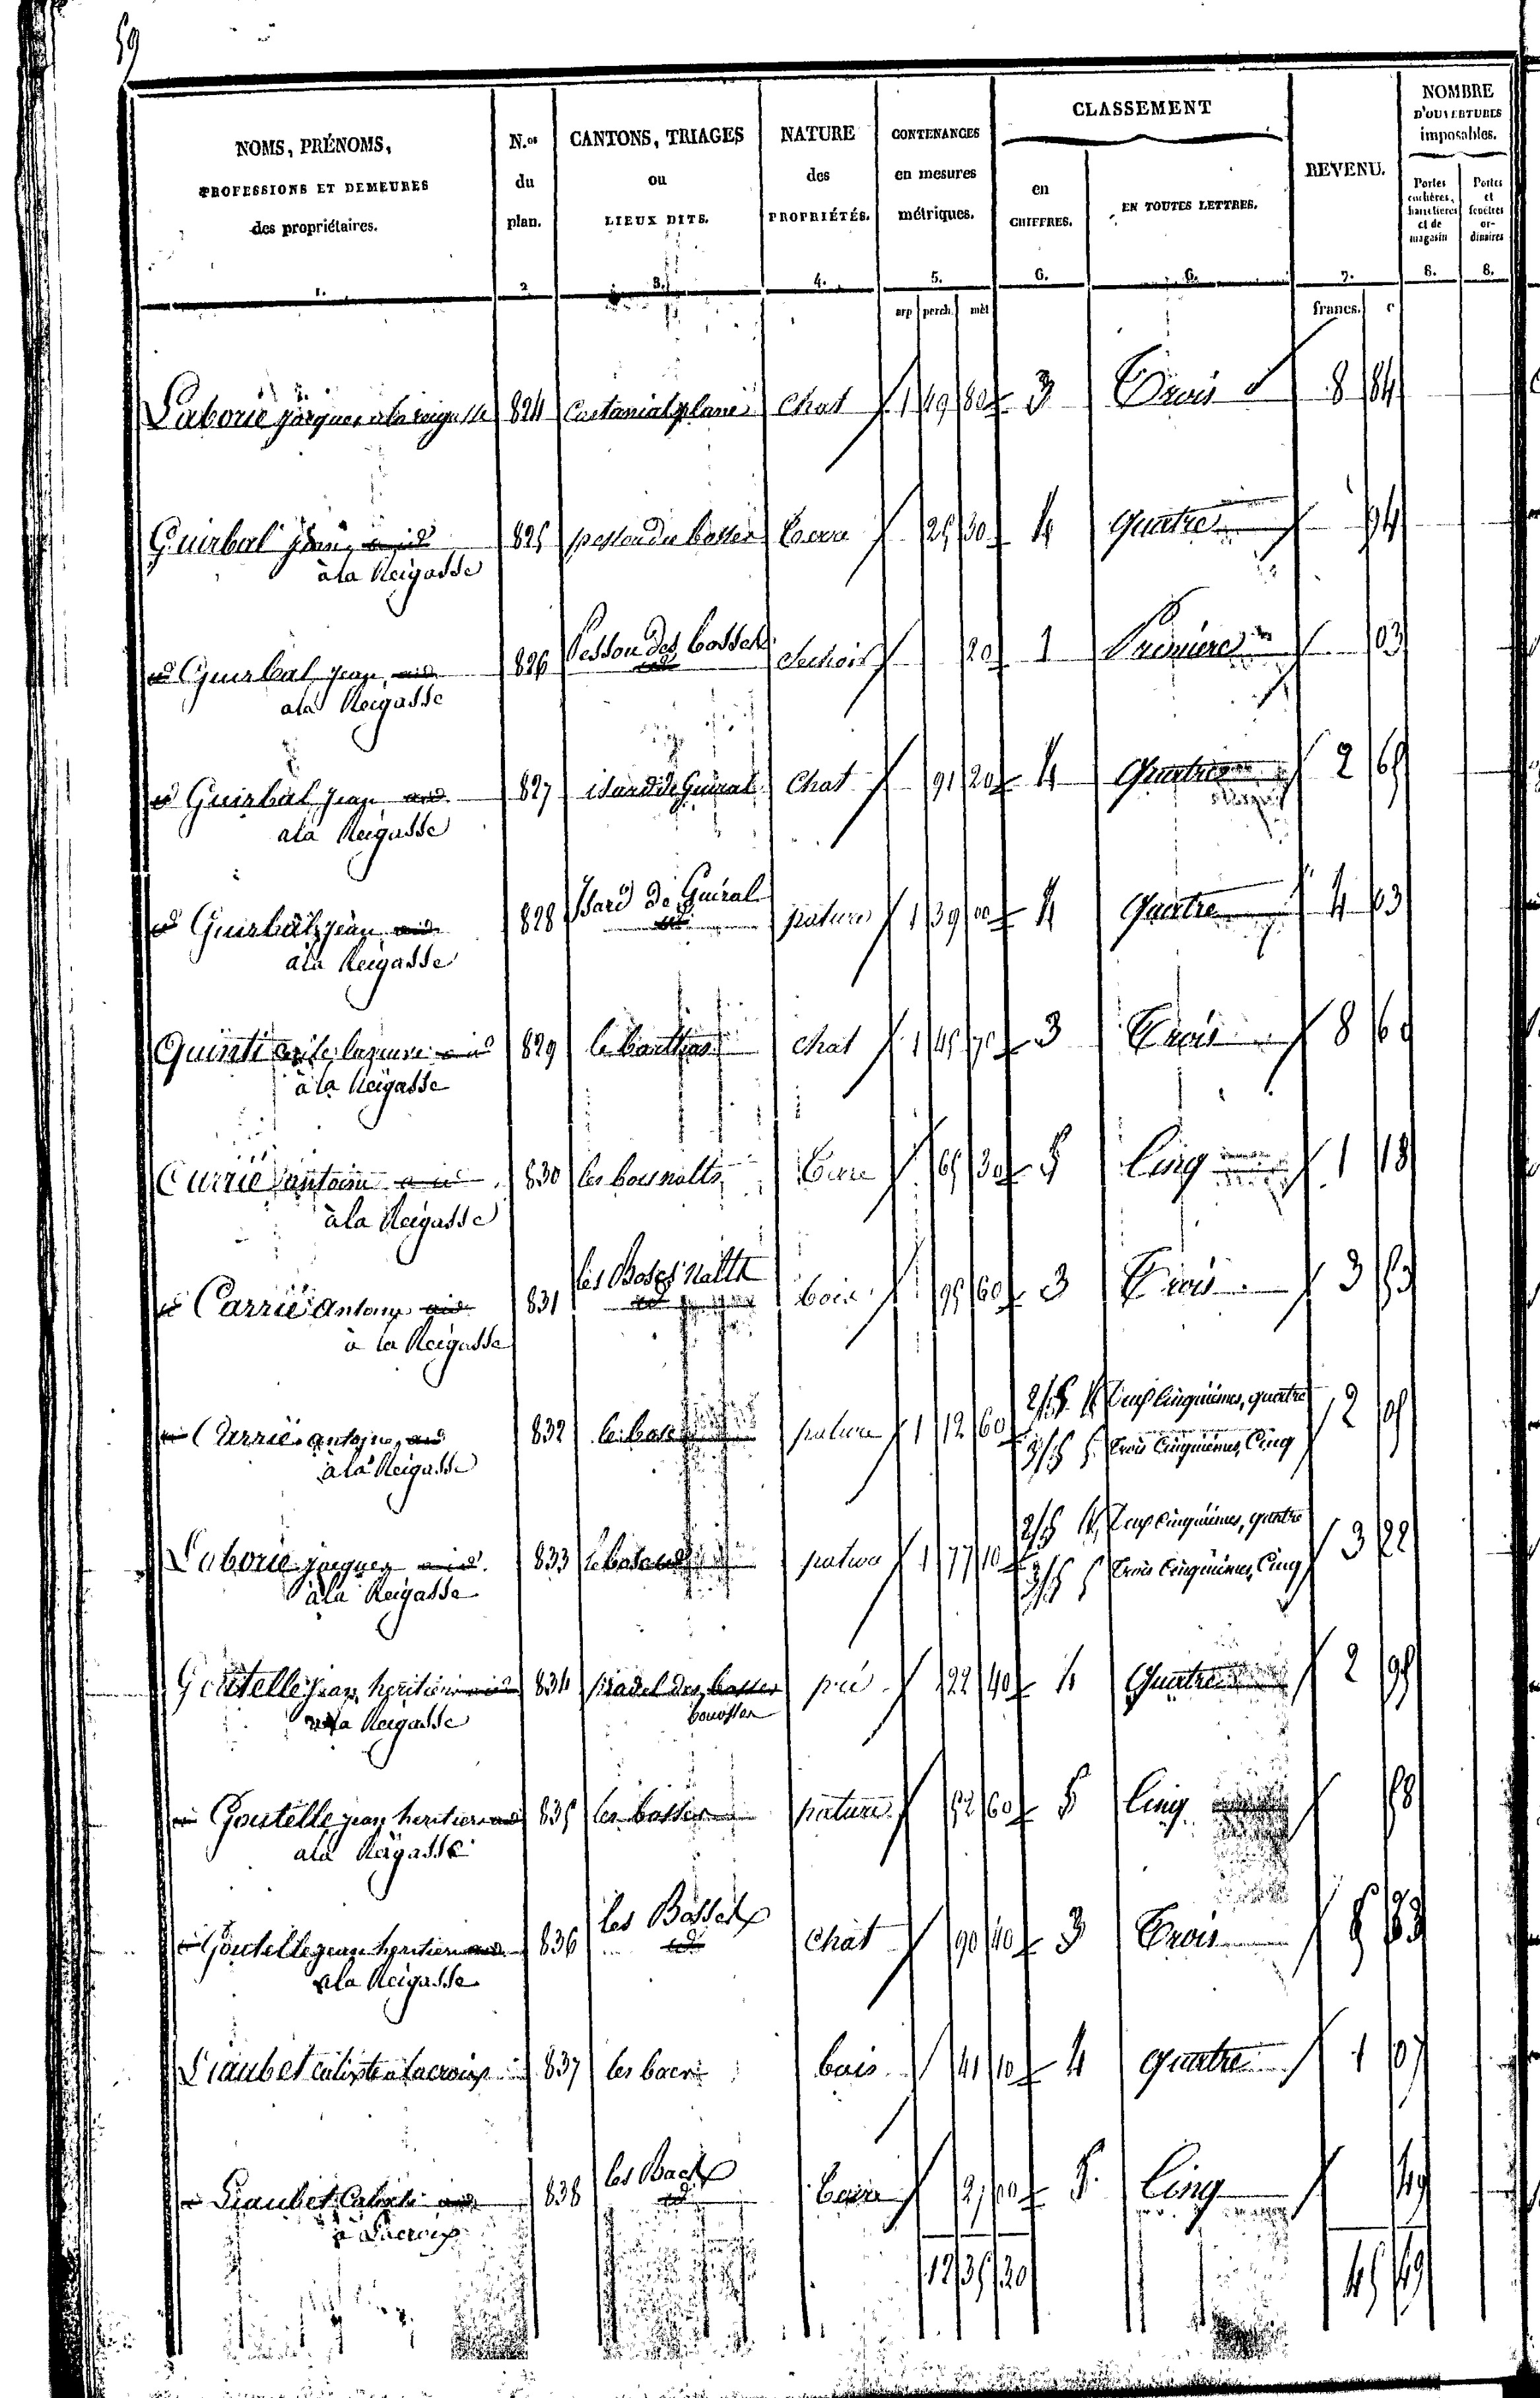 59
NOMS, PRÉNOMS, PROFESSIONS ET DEMEURES des propriétaires. 1.
N.os du plan. 2
CANTONS, TRIAGES ou LIEUX DITS. 3.
NATURE des PROPRIÉTÉS. 4.
CONTENANCES en mesures métriques. 5.
CLASSEMENT
en CHIFFRES. 6.
EN TOUTES LETTRES. 6.
REVENU. 7.
NOMBRE D'OUVERTURES imposables.
Portes cochères, charretières et de magasin 8.
Portes et fenêtres ordinaires 8.
arp perch. mèt
francs. c
Laborie jacques a la reigasse 824 Castanial plane chat 1 49 80 3 Trois 8 84
Guirbal jean aid 825 terre 25 30 4 quatre 94
à la Reigasse
Pesson des bosses
id Guirbal jean aid 826 id Sechoir 20 1 Première 03
a la Reigasse
id Guirbal jean aid 827 isard de Guiral chat 91 20 4 Quatre 2 65
a la Reigasse
Isard de Guiral
id Guirbal jean aid 828 id pature 1 39 00 4 Quatre 4 03
à la Reigasse
Quinti aid 829 chat 1 45 70 3 Trois 8 60
à la Reigasse
Carrié antoine aid 830 les bosnalts terre 65 30 5 Cinq 1 18
à la Reigasse
id Carrié antoine aid 831 id bois 95 60 3 Trois 3 53
à la Reigasse
id Carrié antoine aid 832 pature 1 12 60 2/5 4 Deux Cinquièmes, quatre 2 05
à la Reigasse 3/5 5 Trois Cinquièmes, Cinq
Laborie jacques aid 833 pature 1 77 10 2/5 4 Deux Cinquièmes, quatre 3 22
à la Reigasse 3/5 5 Trois Cinquièmes, Cinq
Goutelle jean heritier aid 834 pradel des bosses pré 22 40 4 Quatre 2 95
a la Reigasse
id Goutelle jean heritier aid 835 les bosses pature 52 60 5 Cinq 58
a la Reigasse
les Bosses
id Goutelle jean heritier aid 836 id chat 90 40 3 Trois 5 33
a la Reigasse
Liaubet calixte a lacroix 837 les bacs bois 41 10 4 quatre 1 07
les Bacs
id Liaubet Calixte aid 838 id terre 27 00 5 Cinq 49
à Lacroix
12 35 20 45 49